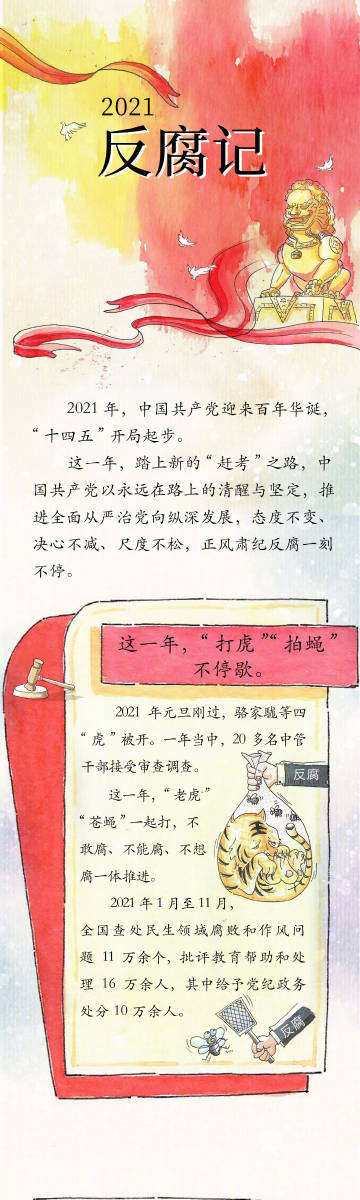 2021
反腐记
2021 年，中国共产党迎来百年华诞，
“十四五”开局起步。
这一年，踏上新的“赶考”之路，中
国共产党以永远在路上的清醒与坚定，推
进全面从严治党向纵深发展，态度不变、
决心不减、尺度不松，正风肃纪反腐一刻
不停。
这一年，“打虎”“拍蝇”
不停歇。
2021 年元旦刚过，骆家駹等四
“虎”被开。一年当中，20 多名中管
干部接受审查调查。
反腐
这一年，“老虎”
“苍蝇”一起打，不
敢腐、不能腐、不想
腐一体推进。
2021 年 1 月至 11 月，
全国查处民生领域腐败和作风问
题 11 万余个，批评教育帮助和处
理 16 万余人，其中给予党纪政务
处分 10 万余人。
反腐